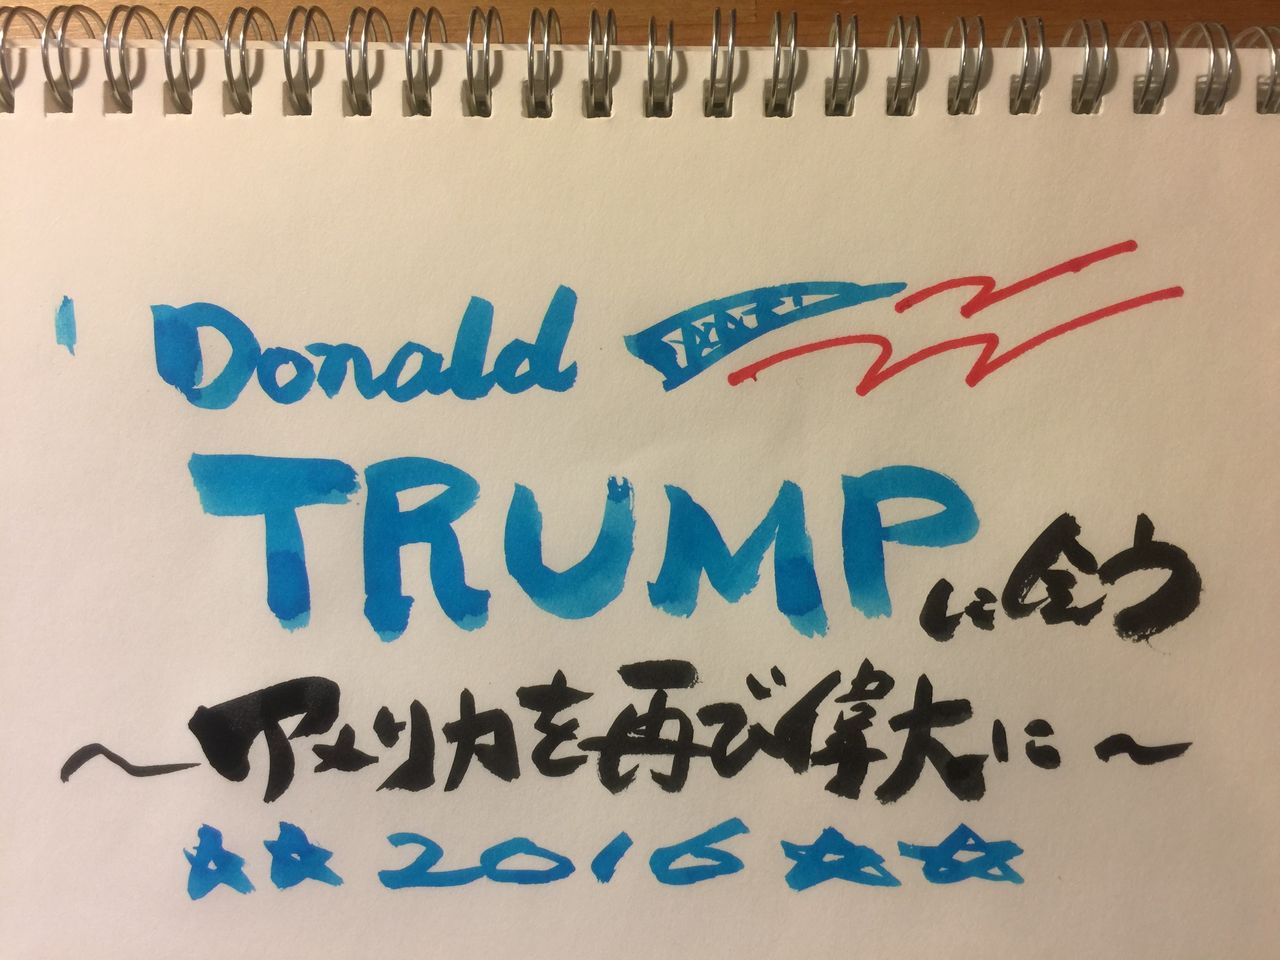 Donald
TRUMPに会う
〜アメリカを再び偉大に〜
☆☆2016☆☆